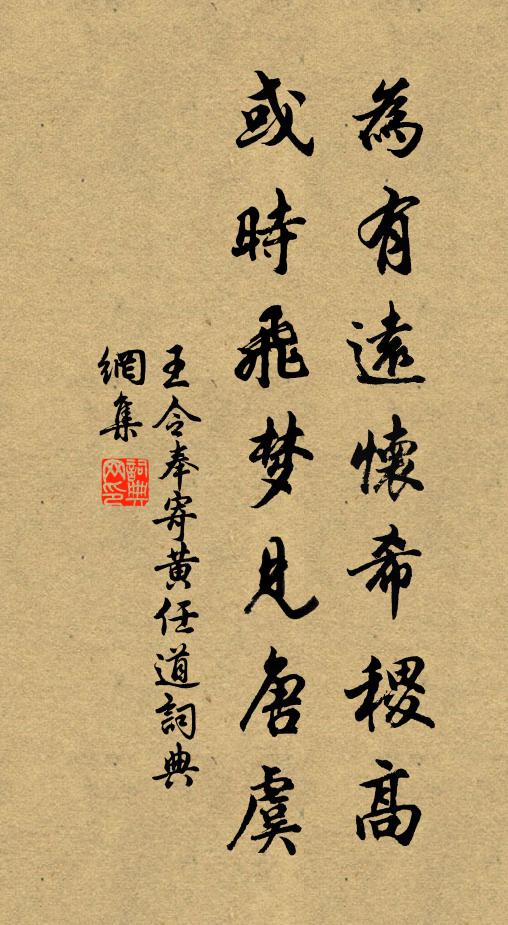 為有遠懷希稷高
或時飛梦見唐虞
王令奉寄黄任道詞典
網集
詞典網印